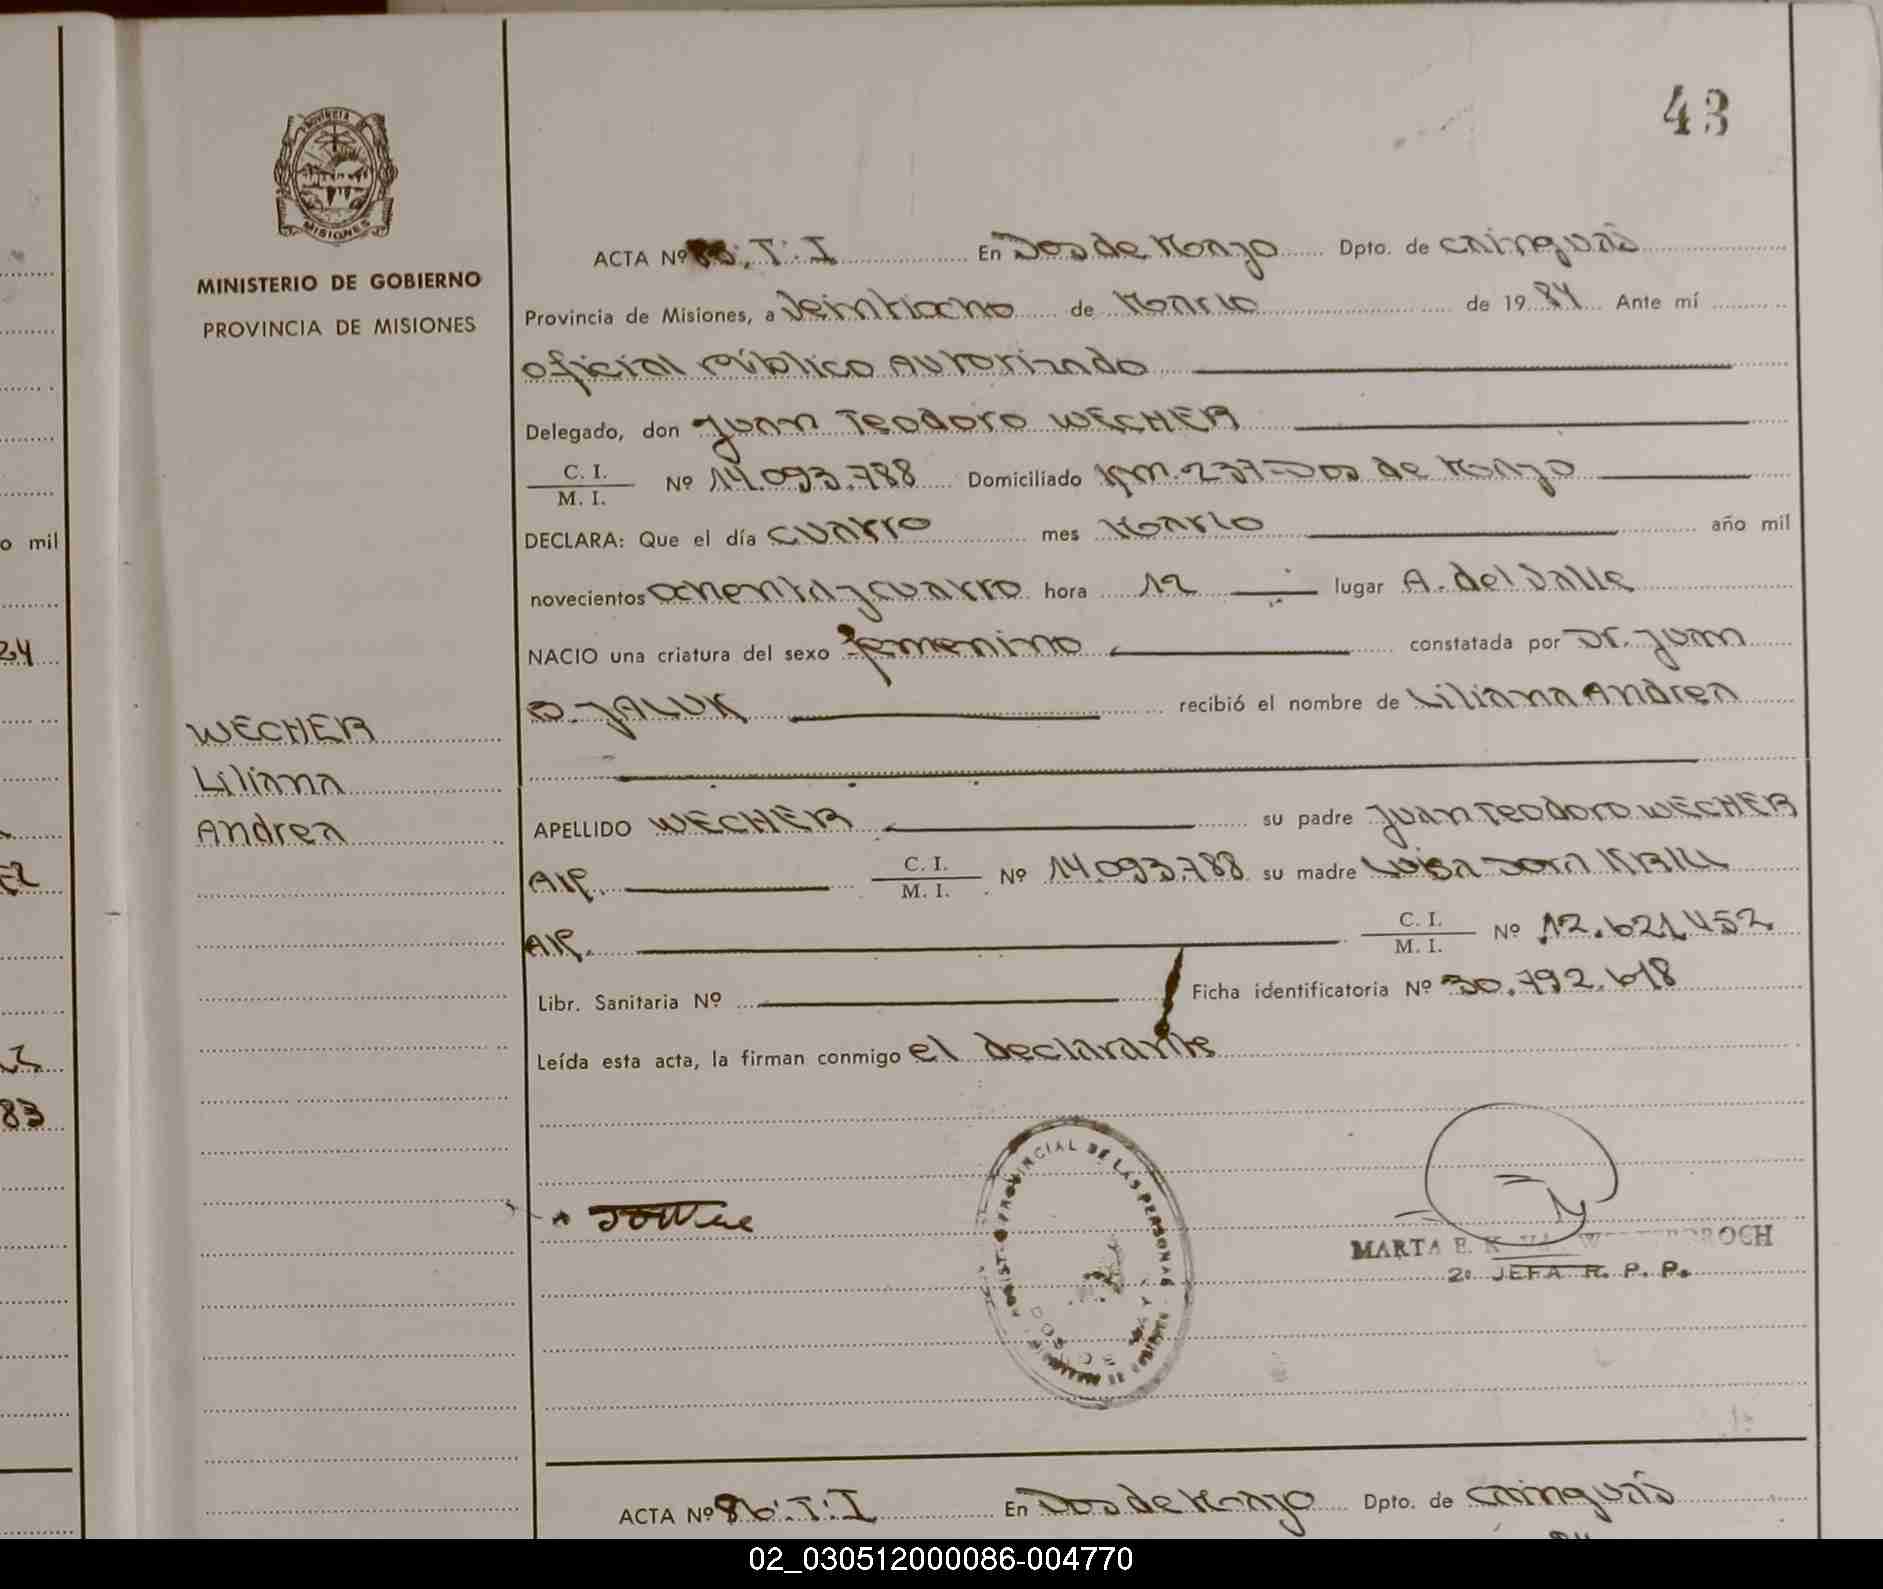 43
PROVINCIA DE
MISIONES
MINISTERIO DE GOBIERNO
PROVINCIA DE MISIONES
ACTA Nº T: I En Dos de Mayo Dpto. de Cainguás
Provincia de Misiones, a Veintiocho de Marzo de 1984 Ante mí
oficial público Autorizado
Delegado, don Juan Teodoro WECHER
C. I.
M. I. Nº 14.093.788 Domiciliado Km. 237-Dos de Mayo
DECLARA: Que el día cuatro mes Marzo año mil
novecientos ochenta y cuatro hora 12 lugar A. del Valle
NACIO una criatura del sexo femenino constatada por Dr. Juan
O. JALUK recibió el nombre de Liliana Andrea
WECHER
Liliana
Andrea
APELLIDO WECHER su padre Juan Teodoro WECHER
Arg. C. I.
M. I. Nº 14.093.788 su madre Luisa Dora
Arg. C. I.
M. I. Nº 12.621.452
Libr. Sanitaria Nº Ficha identificatoria Nº 30.792.618
Leída esta acta, la firman conmigo el declarante
PROVINCIAL DE LAS PERSONAS
MARTA E. K
2º JEFA R. P. P.
ACTA Nº 86: T: I En Dos de Mayo Dpto. de Cainguás
o mil
24
83
02_030512000086-004770